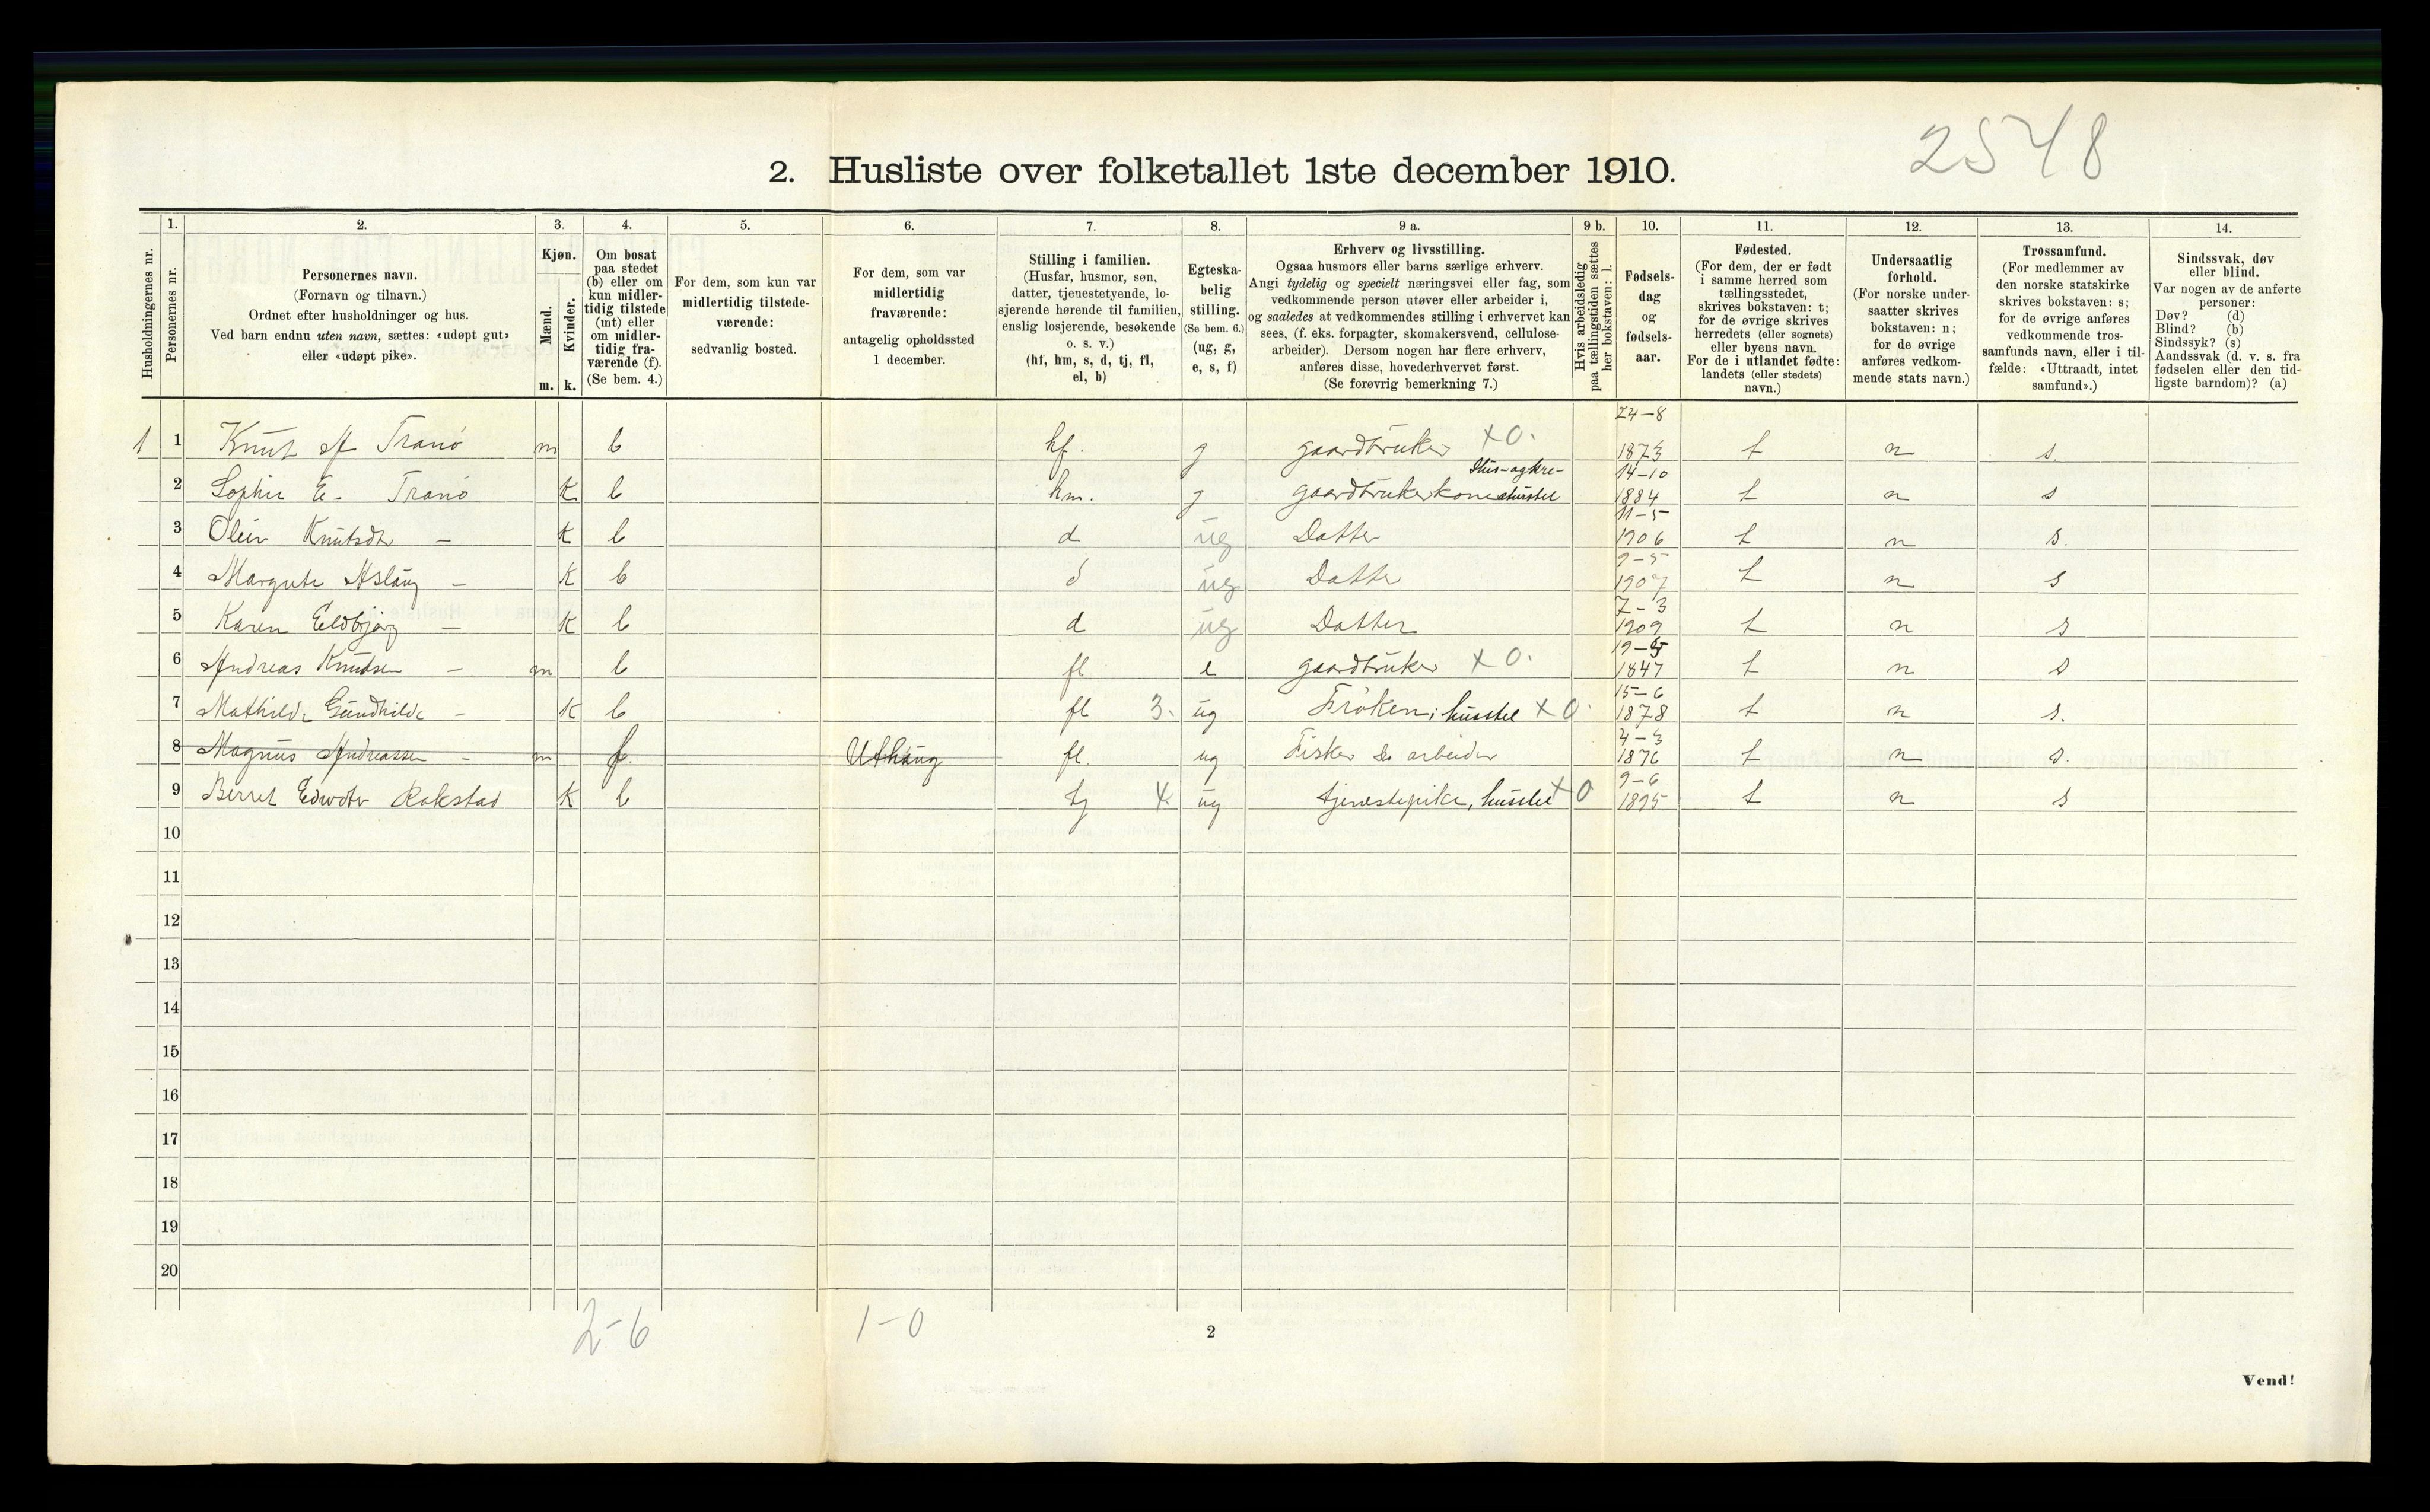 2548
2. Husliste over folketallet 1ste december 1910.
Husholdningernes nr.
1.
Personernes nr.
2.
Personernes navn.
(Fornavn og tilnavn.)
Ordnet efter husholdninger og hus.
Ved barn endnu uten navn, sættes: «udøpt gut»
eller «udøpt pike».
3.
Kjøn.
Mænd.
Kvinder.
m. k.
4.
Om bosat
paa stedet
(b) eller om
kun midler-
tidig tilstede
(mt) eller
om midler-
tidig fra-
værende (f).
(Se bem. 4.)
5.
For dem, som kun var
midlertidig tilstede-
værende:
sedvanlig bosted.
6.
For dem, som var
midlertidig
fraværende:
antagelig opholdssted
1 december.
7.
Stilling i familien.
(Husfar, husmor, søn,
datter, tjenestetyende, lo-
sjerende hørende til familien,
enslig losjerende, besøkende
o. s. v.)
(hf, hm, s, d, tj, fl,
el, b)
8.
Egteska-
belig
stilling.
(Se bem. 6.)
(ug, g,
e, s, f)
9 a.
Erhverv og livsstilling.
Ogsaa husmors eller barns særlige erhverv.
Angi tydelig og specielt næringsvei eller fag, som
vedkommende person utøver eller arbeider i,
og saaledes at vedkommendes stilling i erhvervet kan
sees, (f. eks. forpagter, skomakersvend, cellulose-
arbeider). Dersom nogen har flere erhverv,
anføres disse, hovederhvervet først.
(Se forøvrig bemerkning 7.)
9 b.
Hvis arbeidsledig
paa tællingstiden sættes
her bokstaven: l.
10.
Fødsels-
dag
og
fødsels-
aar.
11.
Fødested.
(For dem, der er født
i samme herred som
tællingsstedet,
skrives bokstaven: t;
for de øvrige skrives
herredets (eller sognets)
eller byens navn.
For de i utlandet fødte:
landets (eller stedets)
navn.)
12.
Undersaatlig
forhold.
(For norske under-
saatter skrives
bokstaven: n;
for de øvrige
anføres vedkom-
mende stats navn.)
13.
Trossamfund.
(For medlemmer av
den norske statskirke
skrives bokstaven: s;
for de øvrige anføres
vedkommende tros-
samfunds navn, eller i til-
fælde: «Uttraadt, intet
samfund».)
14.
Sindssvak, døv
eller blind.
Var nogen av de anførte
personer:
Døv? (d)
Blind? (b)
Sindssyk? (s)
Aandssvak (d. v. s. fra
fødselen eller den tid-
ligste barndom)? (a)
1 1 Knut A Tranø m b hf. g gaardbruker x0. 24-8 1873 t n s.
2 Sophie E. Tranø K b hm. g gaardbrukerkone Hus- og kre- 14-10 1884 t n s
3 Knutsdtr - K b d ug Datter 11-5 1906 t n s.
4 Margrete Aslaug - K b d ug Datter 9-5 1907 t n s
5 Karen Eldbjørg - K b d ug Datter 7-3 1909 t n s
6 Andreas Knudsen - m b fl e gaardbruker x0. 1847 t n s
7 Mathilde Gundhilde - K b fl 3. ug Frøken; husstel x0. 15-6 1878 t n s.
8 Magnus Andreassen - m f. Uthaug fl. ug Fisker arbeider 4-3 1876 t n s.
9 Berret Rokstad K b tj 4. ug tjenestepike, husstel x0 9-6 1895 t n s
10
11
12
13
14
15
16
17
18
19
20
2-6 1-0
2
Vend!